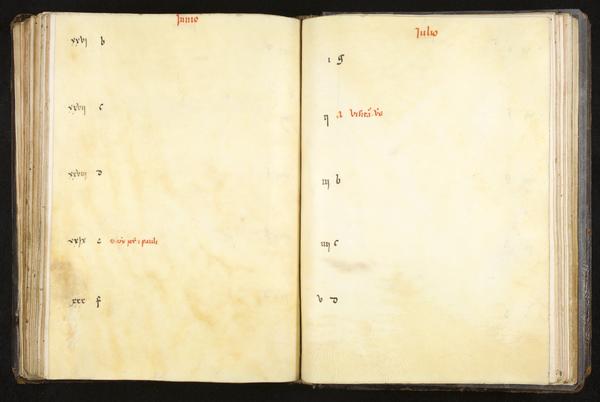 Junio
xxvj b
xxvij c
xxviij d
xxjx e
xxx f
Julio
ı g
ıȷ A
iij b
iiij c
v d